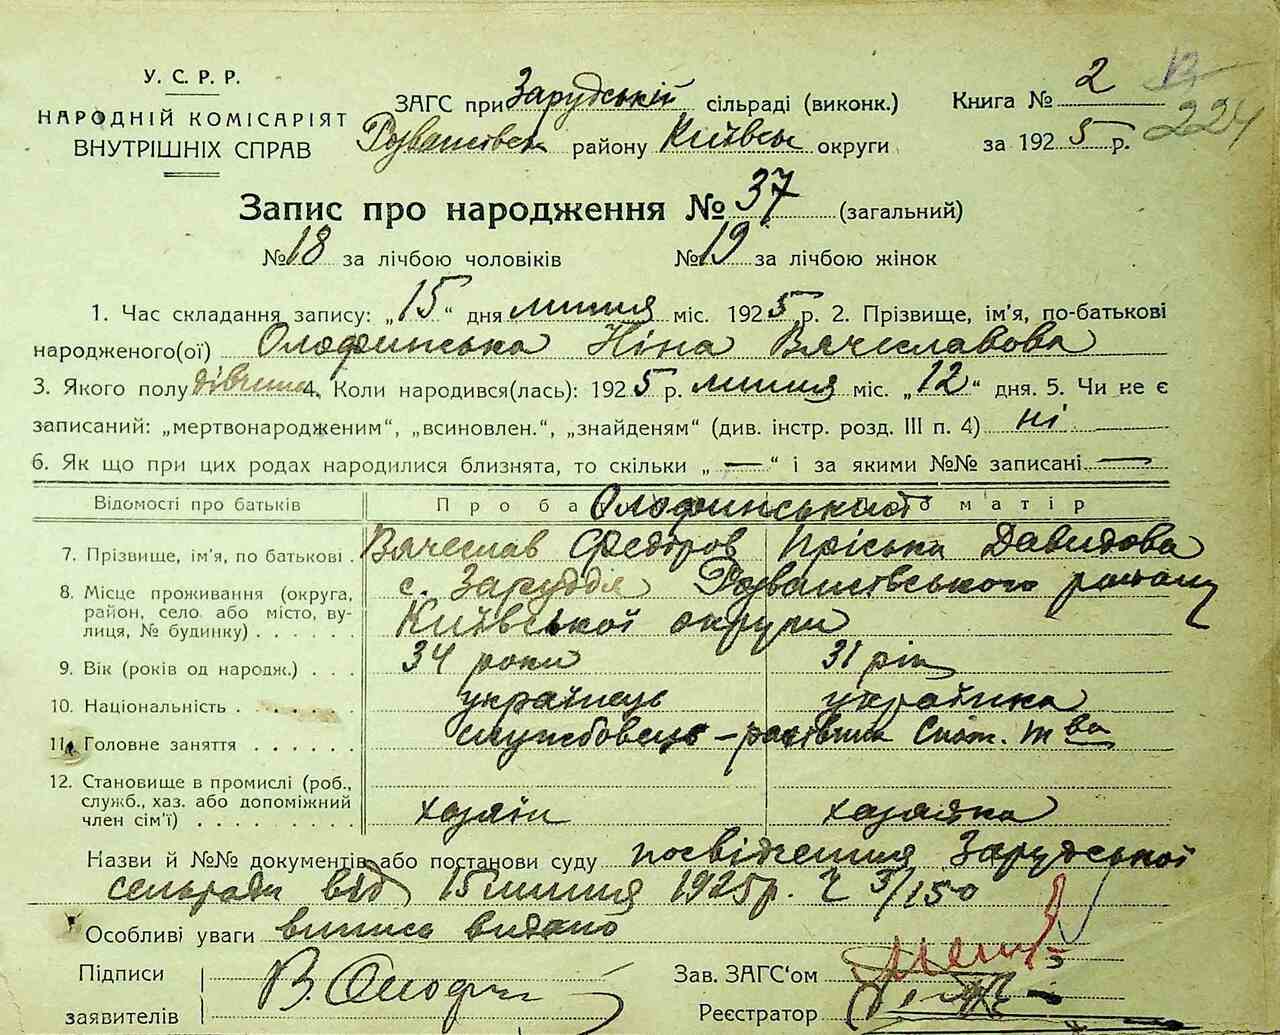 У. С. Р. Р.
НАРОДНІЙ КОМІСАРІЯТ
ВНУТРІШНІХ СПРАВ
ЗАГС при Зарудській сільраді (виконк.)
Розваживськ району Київськ округи
Книга № 2
за 1925 р.
224
Запис про народження № 37 (загальний)
№ 18 за лічбою чоловіків № 19 за лічбою жінок
1. Час складання запису: „15“ дня липня міс. 1925 р. 2. Прізвище, ім'я, по-батькові
народженого(ої) Олофинська Ніна Вячеславова
3. Якого полу дівчина 4. Коли народився(лась): 1925 р. липня міс. „12“ дня. 5. Чи не є
записаний: „мертвонародженим“, „всиновлен.“, „знайденям“ (див. інстр. розд. III п. 4) ні
6. Як що при цих родах народилися близнята, то скільки „—“ і за якими №№ записані —
Відомості про батьків Про ба Про матір
Олофинські
7. Прізвище, ім'я, по батькові . Вячеслав Федоров Пріська Давидова
8. Місце проживання (округа, район, село або місто, вулиця, № будинку) . . . . . . с. Заруддя Розваживського району
Київської округи
9. Вік (років од народж.) . . . 34 роки 31 рік
10. Національність . . . . . . українець українка
11. Головне заняття . . . . . . службовець - Спож. т ва
12. Становище в промислі (роб., служб., хаз. або допоміжний член сім'ї) . . . . . . . . хазяїн хазяйка
Назви й №№ документів або постанови суду посвідчення Зарудської
сельради від 15 липня 1925 р. Ч 3/150
Особливі уваги випись видано
Підписи
заявителів
В. Олофин
Зав. ЗАГС'ом
Реєстратор